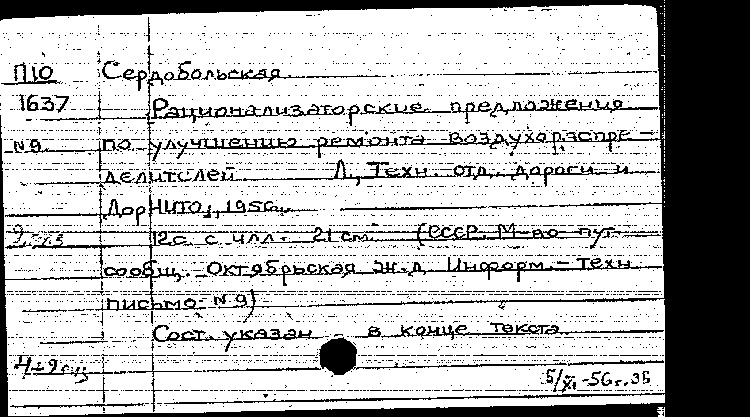 П10 Сердобольская
1637 Рационализаторские предложения
N9 по улучшению ремонта воздухораспре-
делителей Л., Техн. отд. дороги и
ДорНИТО, 1956.
12с. с илл. 21см. (СССР. М-во пут.
сообщ. Октябрьская ж.д. Информ.-техн.
письмо N9)
Сост. указан в конце текста
5/XI-56г. 35